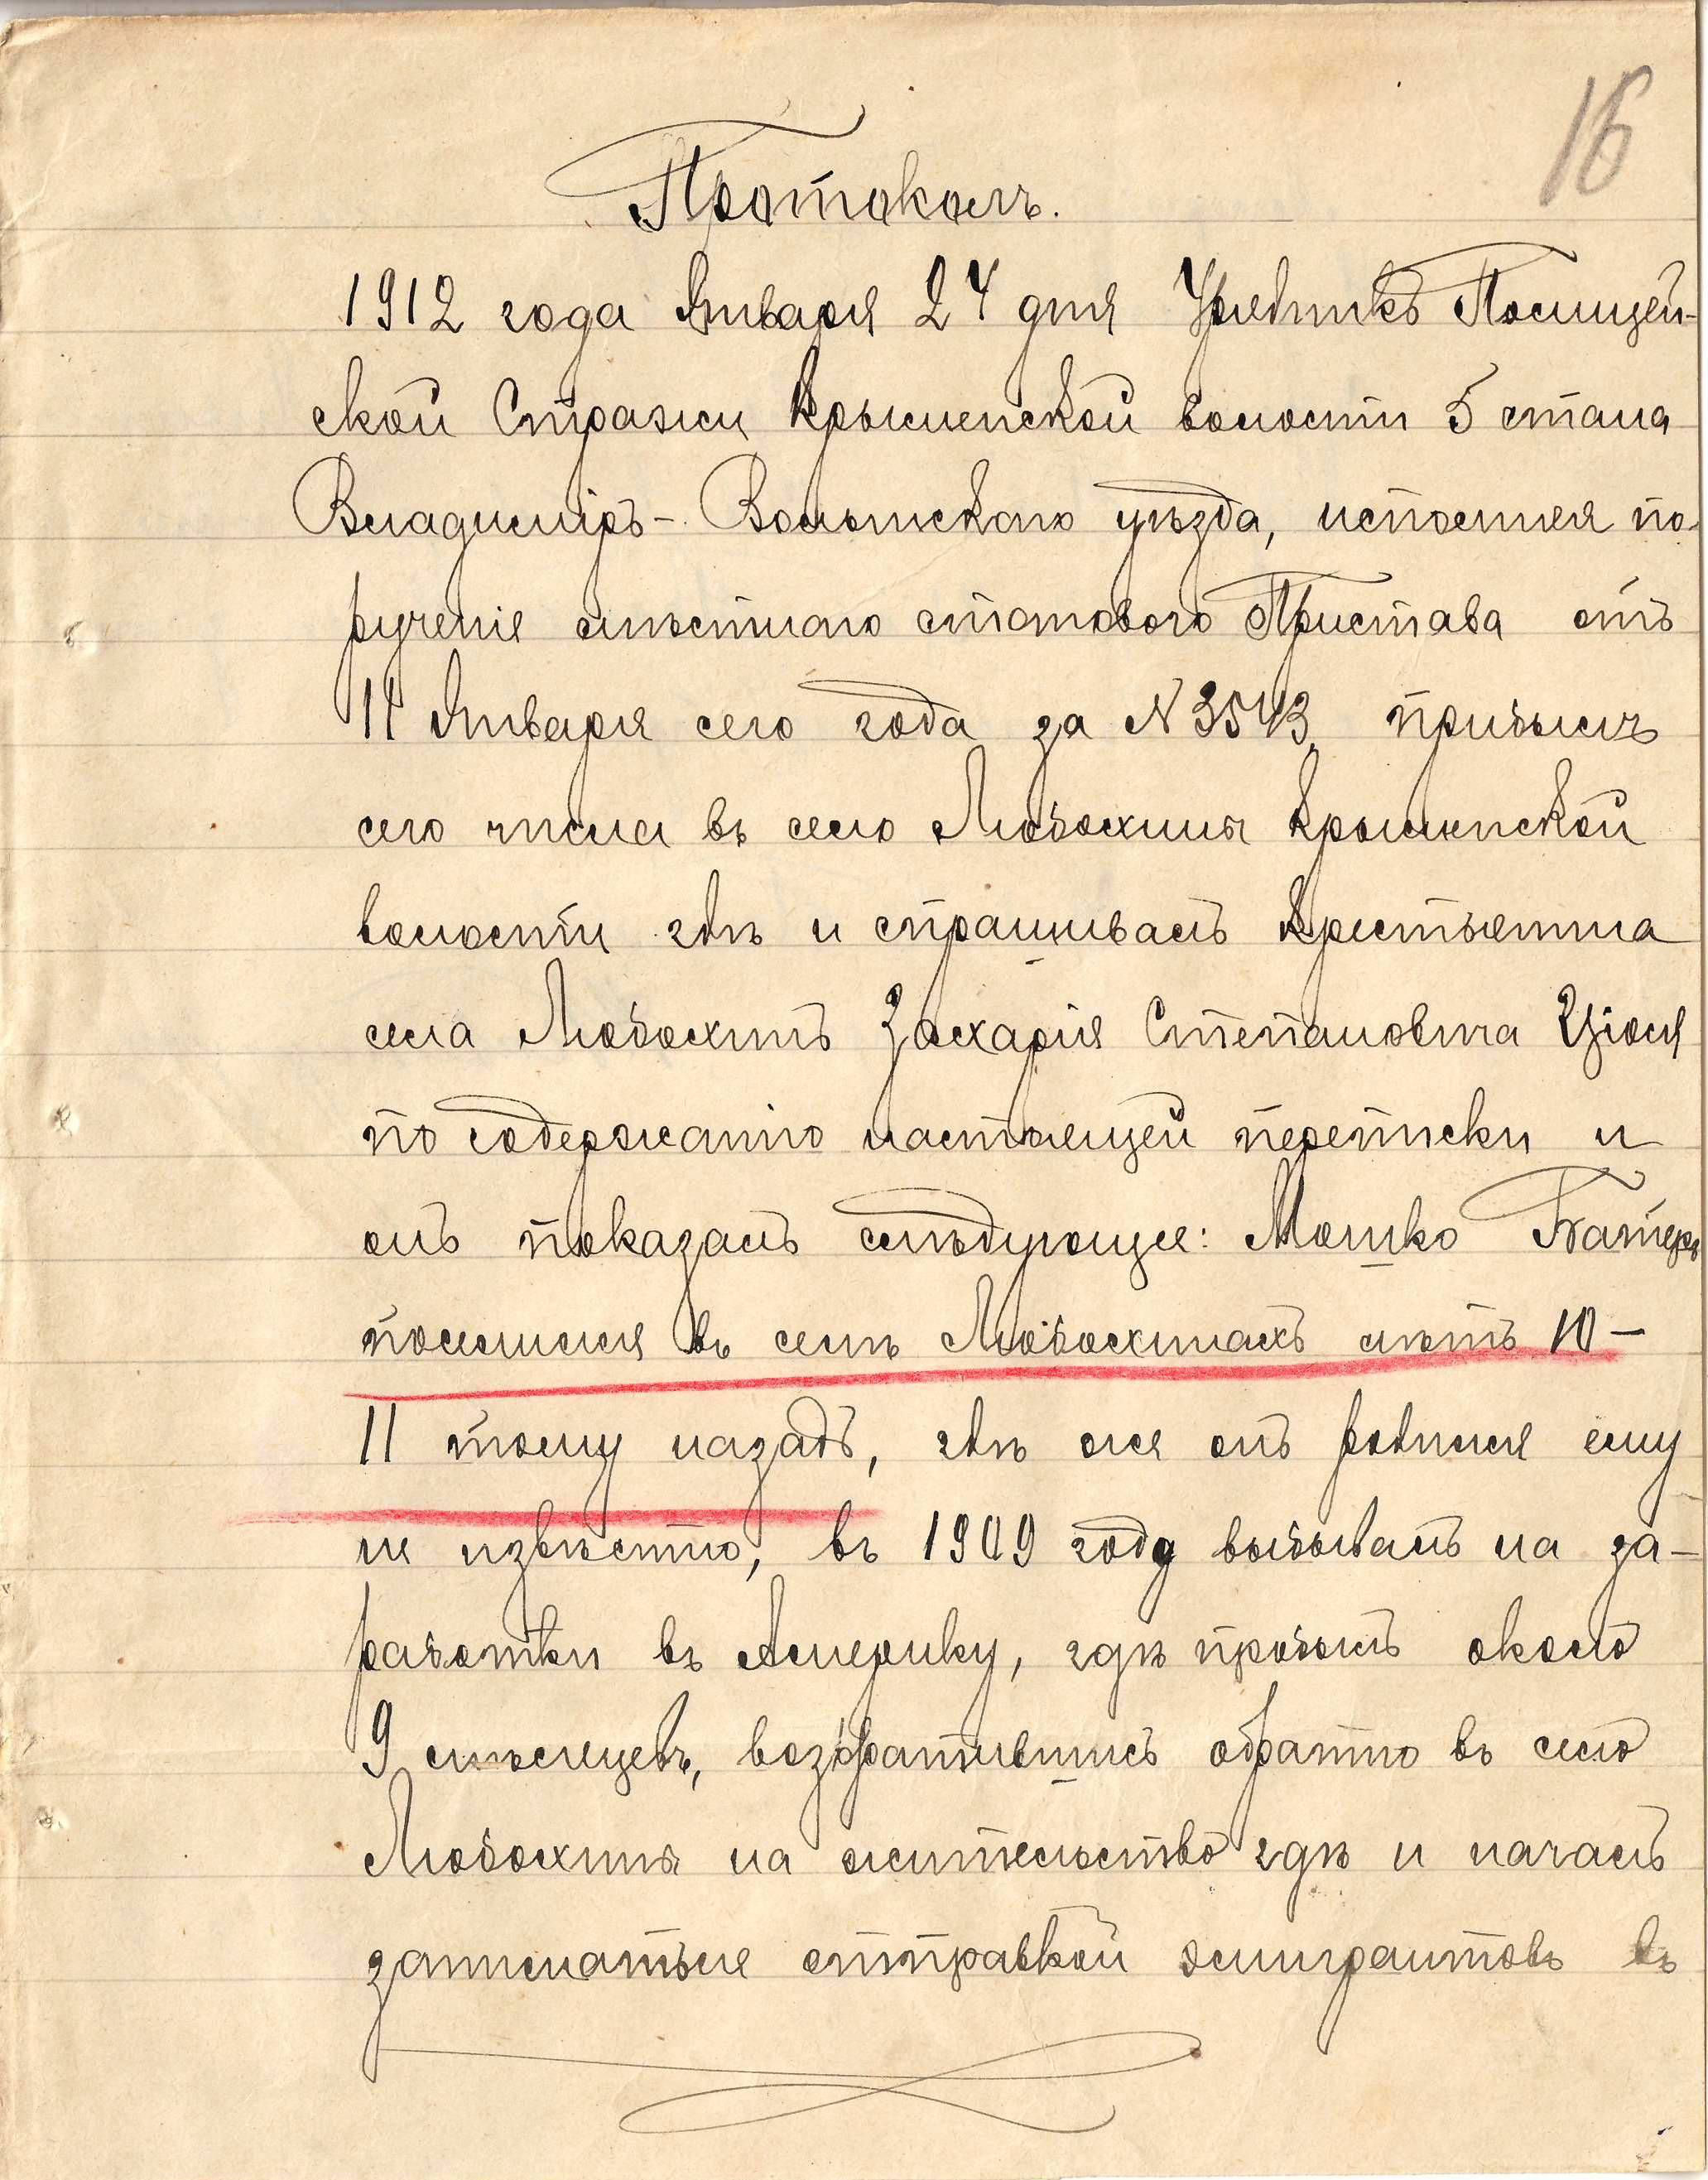 16
Протоколъ.
1912 года Января 24 дня Урядникъ Полицей-
ской Стражи Крымненской волости 5 стана
Владимiръ-Волынскаго уѣзда, исполняя по-
рученiе мѣстнаго станового Пристава отъ
11 Января сего года за № 3543, прибылъ
сего числа въ село Любохины Крымненской
волости гдѣ и спрашивалъ крестьянина
села Любохинъ Захарiя Степановича Цiоля
по содержанiю настоящей переписки и
онъ показалъ слѣдующее: Мошко
поселился въ селѣ Любохинахъ лѣтъ 10-
11 тому назадъ, гдѣ же онъ родился ему
не извѣстно, въ 1909 году выбывалъ на за-
работки въ Америку, гдѣ пробылъ около
9 мѣсяцевъ, возвратившись обратно въ село
Любохины на жительство гдѣ и началъ
заниматься отправкой эмигрантовъ въ